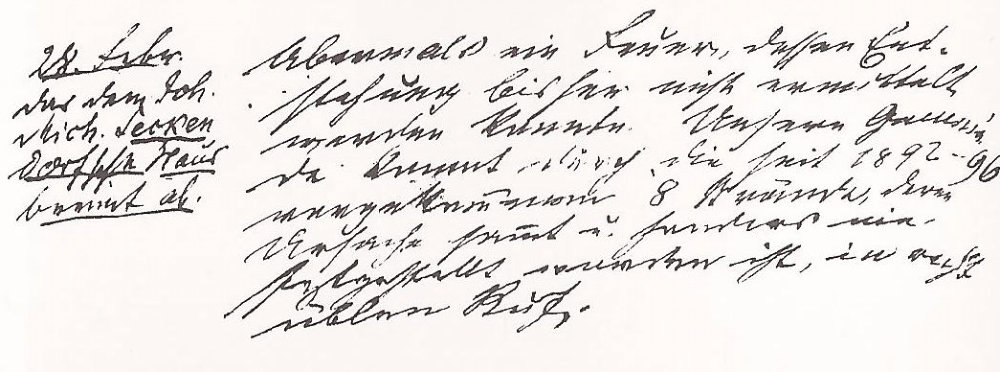 28. Febr.
das dem Joh.
Mich. Secken
dorfsche Haus
brennt ab.
Abermals ein Feuer, dessen Ent-
stehung bisher nicht ermittelt
werden konnte. Unsere Gemein
de kommt durch die seit 1892-96
vorgekommenen 8 Brände, deren
Ursache sammt u. sonders nie
festgestellt worden ist, in recht
üblen Ruf.